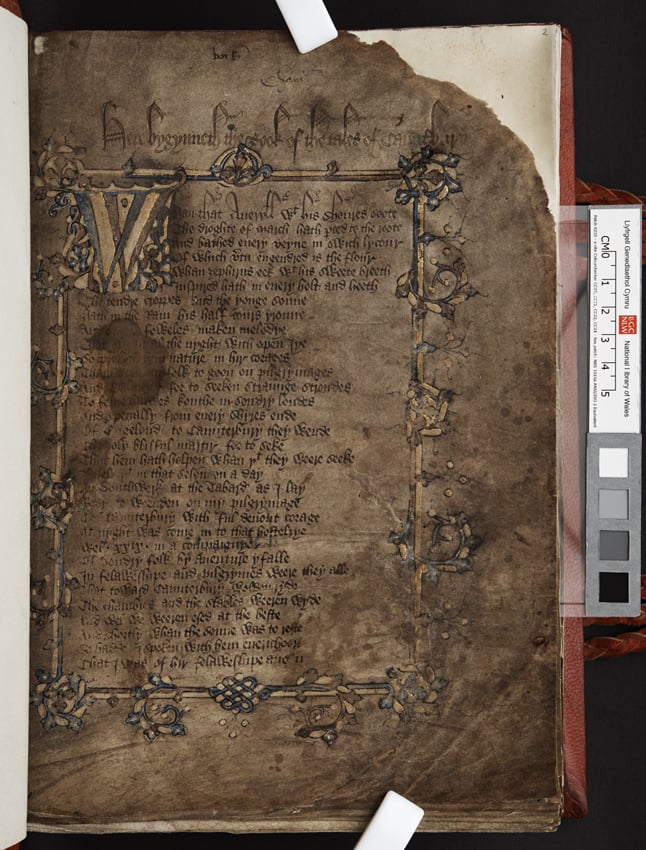 2
Here bygynneth the Book of the tales of Caunterbury
Whan that Aueryll wt his shoures soote
The droghte of March hath perced to the roote
And bathed euery veyne in swich lycour
Of which vertu engendred is the flour
Whan zephirus eek wt his sweete breeth
Inspired hath in euery holt and heeth
The tendre croppes and the yonge sonne
Hath in the Ram his half cours yronne
And foweles maken melodye
That al the nyght with open Iye
So nature in hir corages
folk to goon on pilgrymages
And for to seeken straunge strondes
To ferne halwes kouthe in sondry londes
And specially from euery shyres ende
Of Engelond to Caunterbury they wende
The holy blisful martir for to seke
That hem hath holpen whan þt they weere seeke
in that seson on a day
In Southwerk at the Tabard as I lay
Redy to weenden on my pilgrymage
To Caunterbury with ful deuout corage
At nyght was come in to that hostelrye
Wel xxix in a compaignye
Of sondry folk by auenture yfalle
In felaweshipe and pilgrymes weere they alle
That toward Caunterbury wolden ryde
The chambres and the stables weeren wyde
And wel we weeren esed at the beste
And shortly whan the sonne was to reste
So hadde I spoken with hem euerichoon
That I was of hir felaweshipe
Llyfrgell Genedlaethol Cymru
LlGC
NLW
National Library of Wales
CM 0 1 2 3 4 5